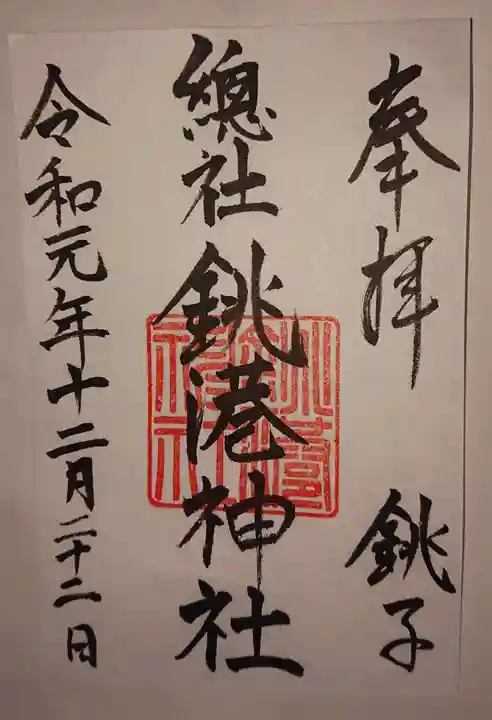 奉拝
銚子
總社 銚港神社
令和元年十二月二十二日